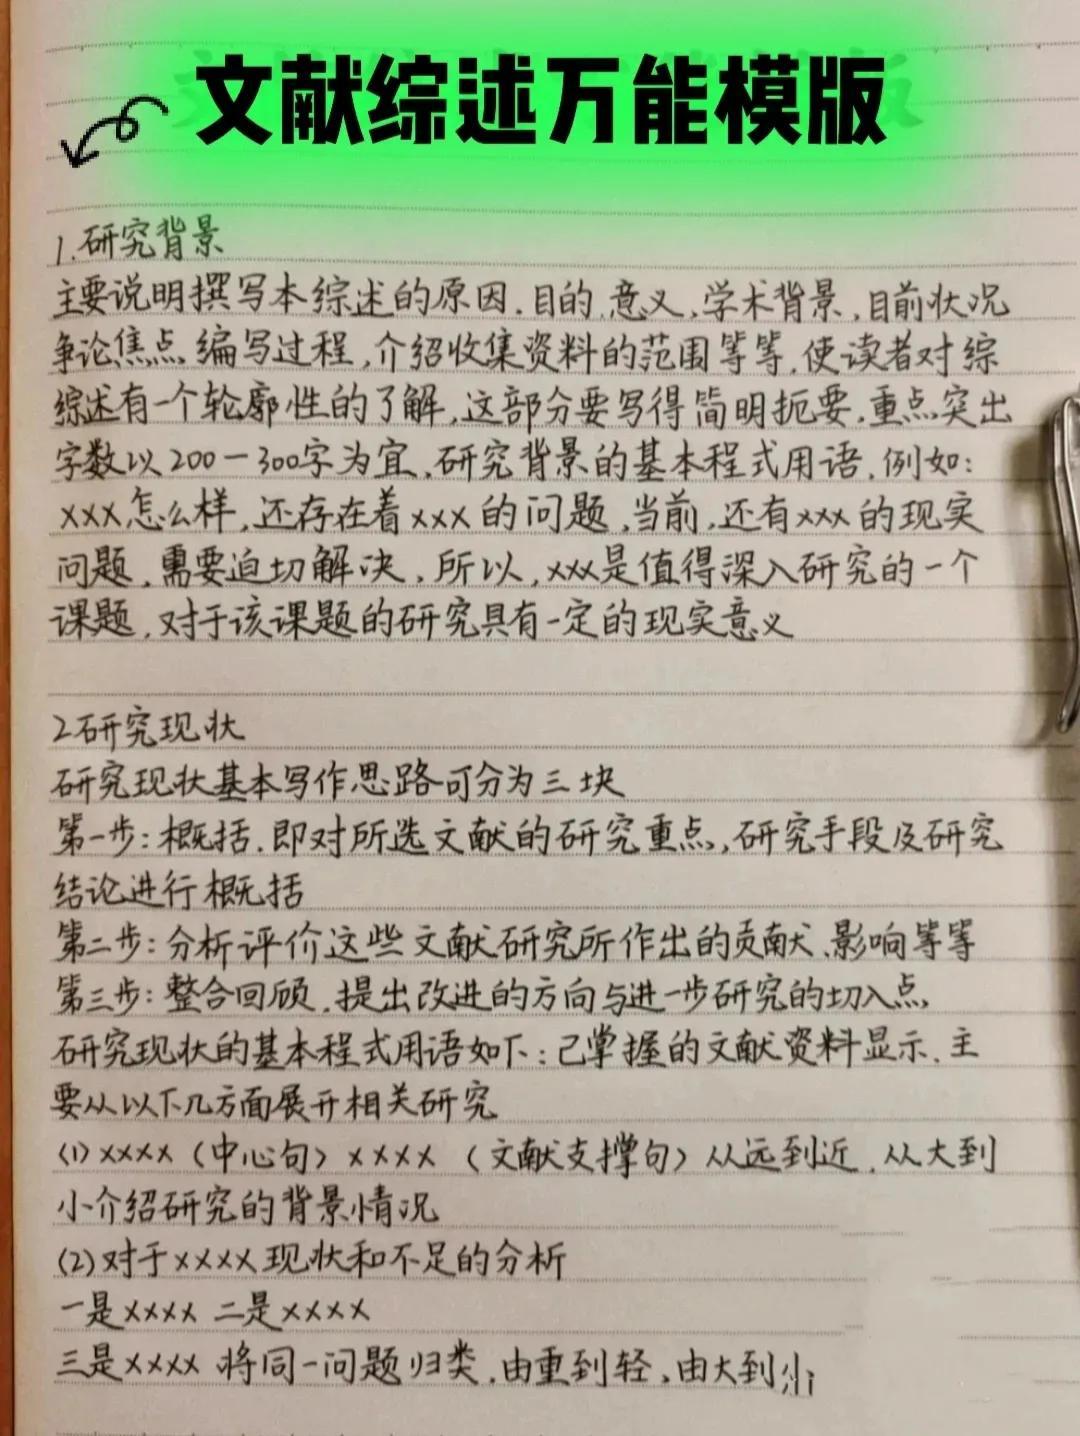 文献综述万能模版
1.研究背景
主要说明撰写本综述的原因.目的.意义,学术背景,目前状况
争论焦点,编写过程,介绍收集资料的范围等等,使读者对综
综述有一个轮廓性的了解,这部分要写得简明扼要,重点突出
字数以200一300字为宜,研究背景的基本程式用语,例如:
xxx怎么样,还存在着xxx的问题,当前,还有xxx的现实
问题,需要迫切解决,所以,xxx是值得深入研究的一个
课题,对于该课题的研究具有一定的现实意义
2研究现状
研究现状基本写作思路可分为三块
第一步:概括.即对所选文献的研究重点,研究手段及研究
结论进行概括
第二步:分析评价这些文献研究所作出的贡献、影响等等
第三步:整合回顾,提出改进的方向与进一步研究的切入点
研究现状的基本程式用语如下:已掌握的文献资料显示、主
要从以下几方面展开相关研究
(1)xxxx(中心句)xxxx(文献支撑句)从远到近,从大到
小介绍研究的背景情况
(2)对于xxxx现状和不足的分析
一是xxxx 二是xxxx
三是xxxx 将同一问题归类,由重到轻,由大到小